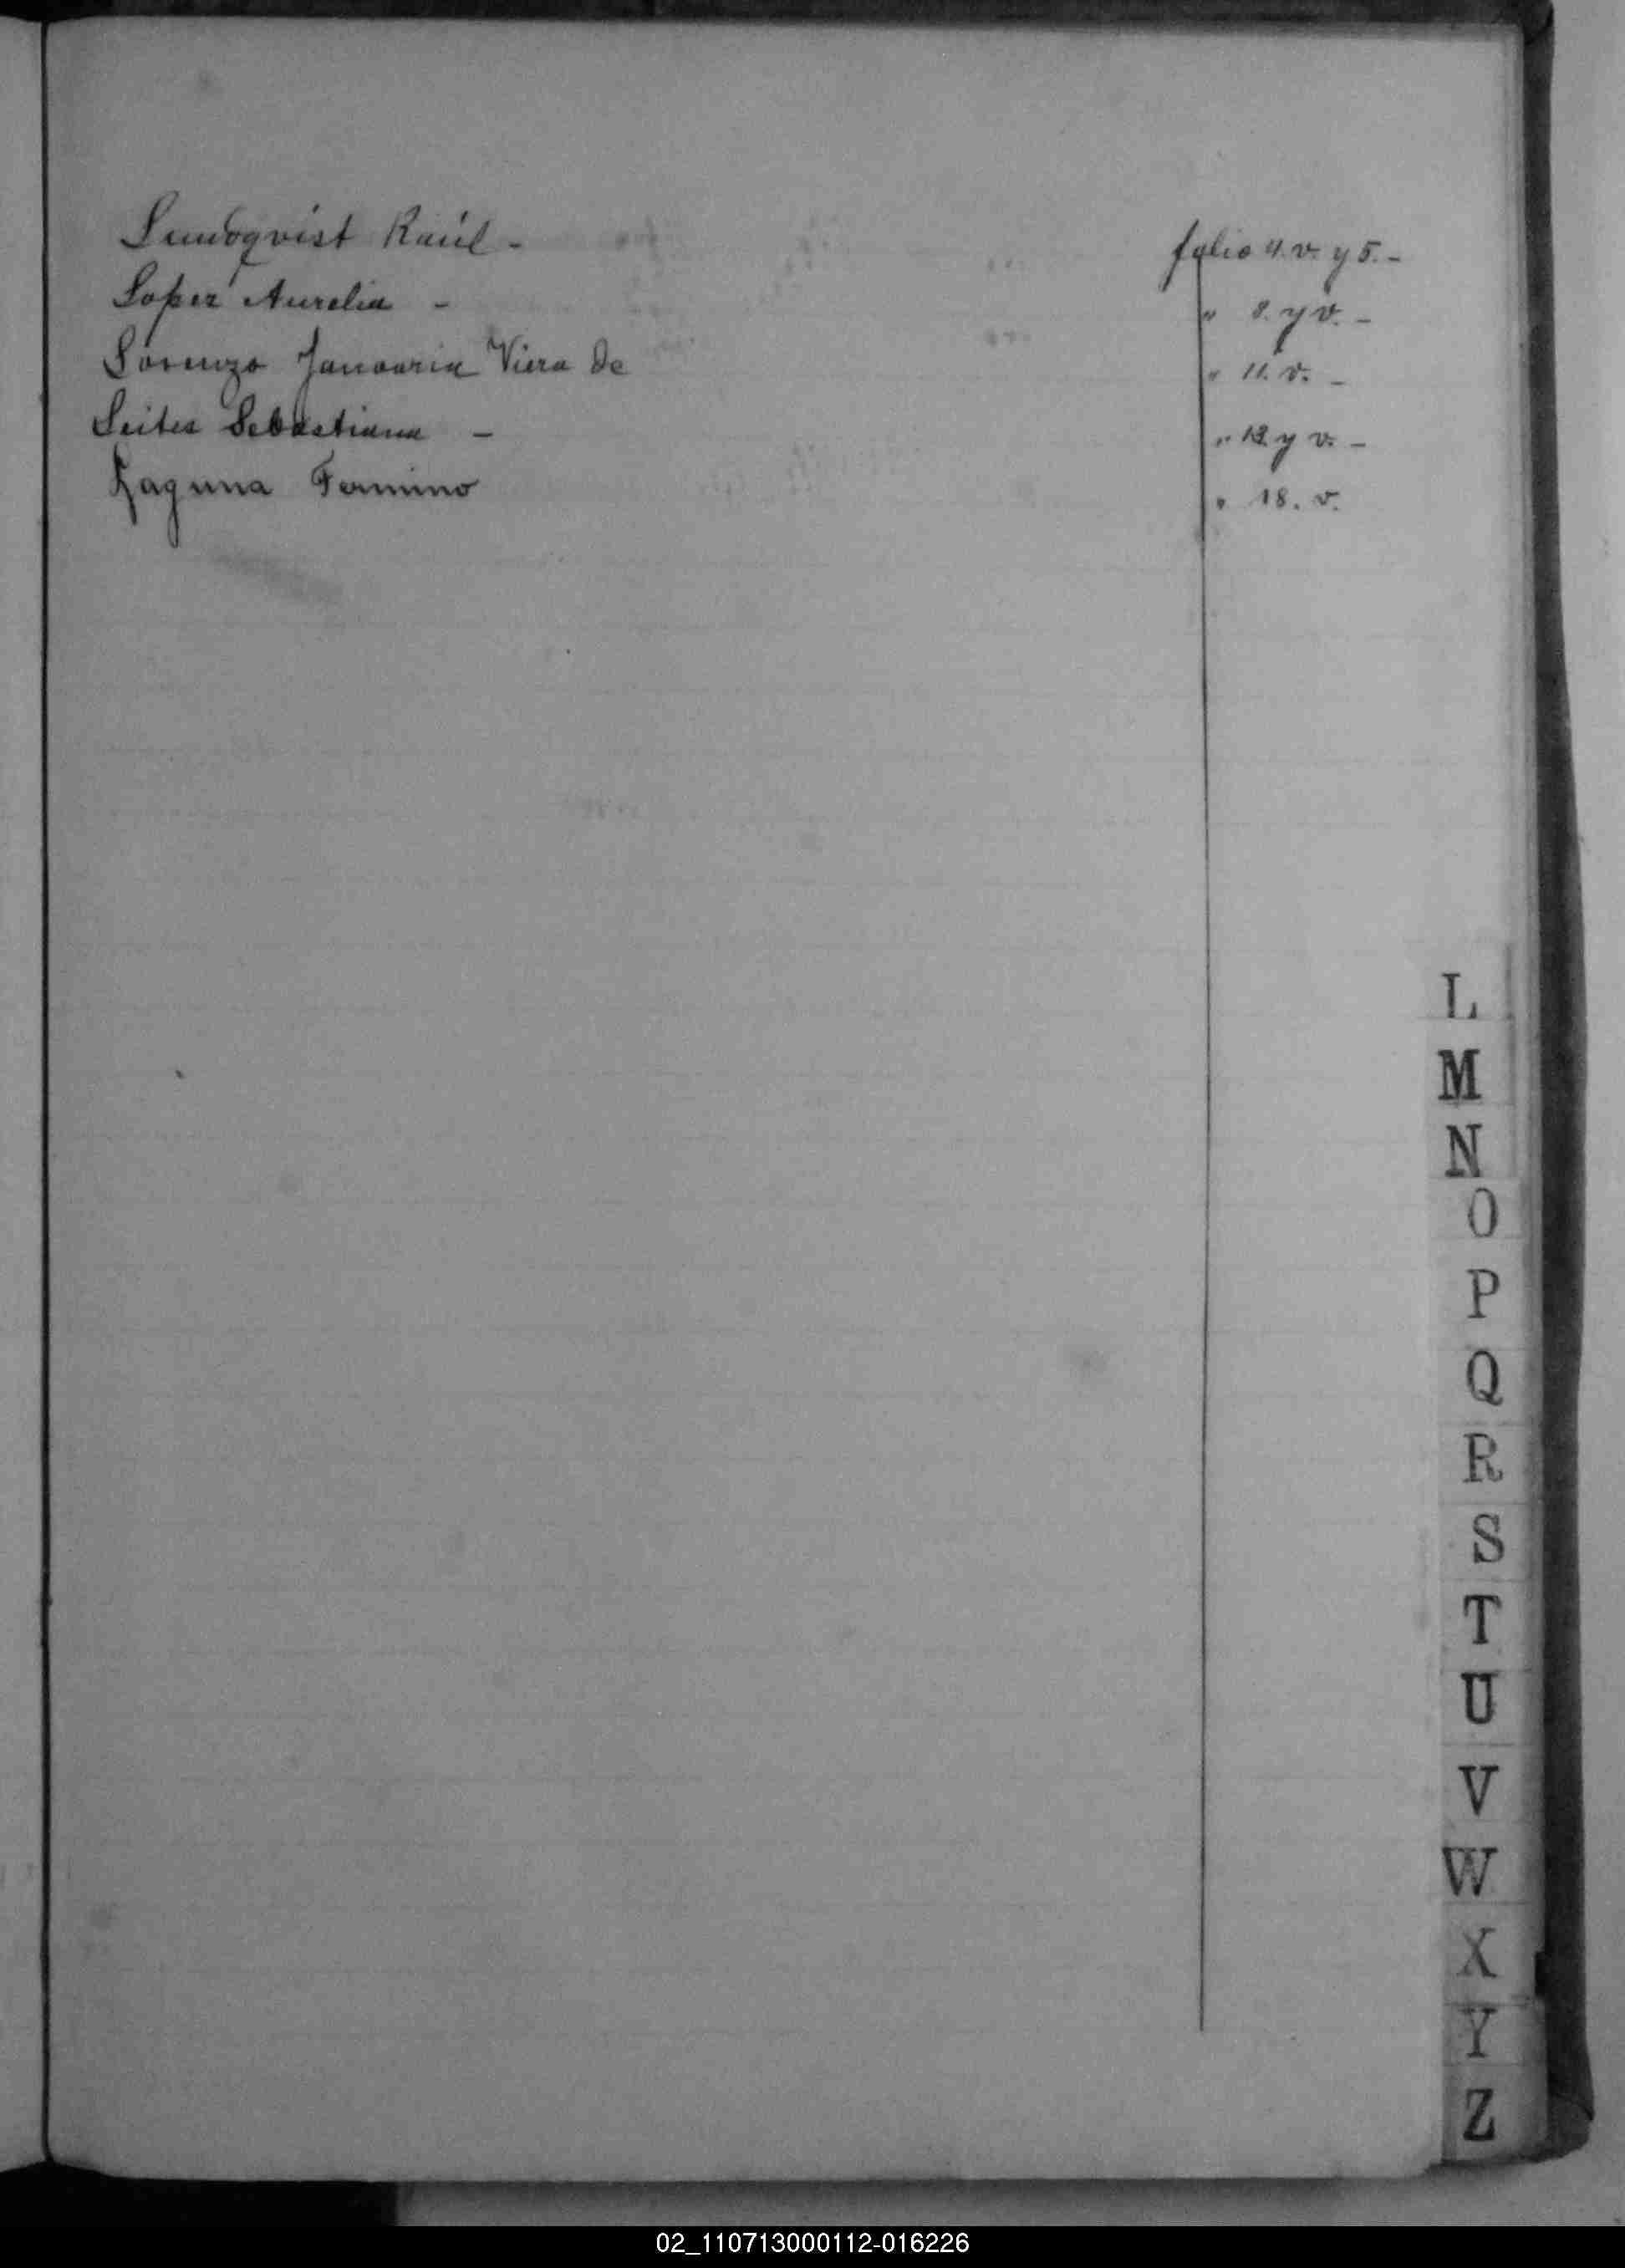 Lundqvist Raúl - folio 4. v. y 5. -
Lopez Aurelia - " 8. y v. -
Lorenzo Januaria Viera de " 11. v. -
Leites Sebastiana - " 13. y v. -
Laguna Fermino " 18. v.
L
M
N
O
P
Q
R
S
T
U
V
W
X
Y
Z
02_110713000112-016226